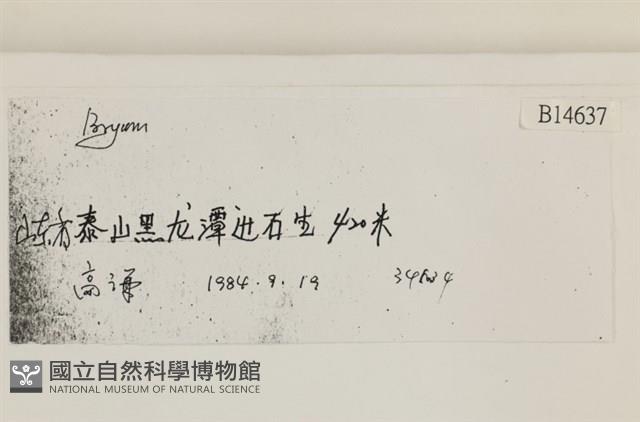 B14637
Bryum
山东省泰山黑龙潭 石生 420米
高谦 1984.9.19 34
國立自然科學博物館
NATIONAL MUSEUM OF NATURAL SCIENCE